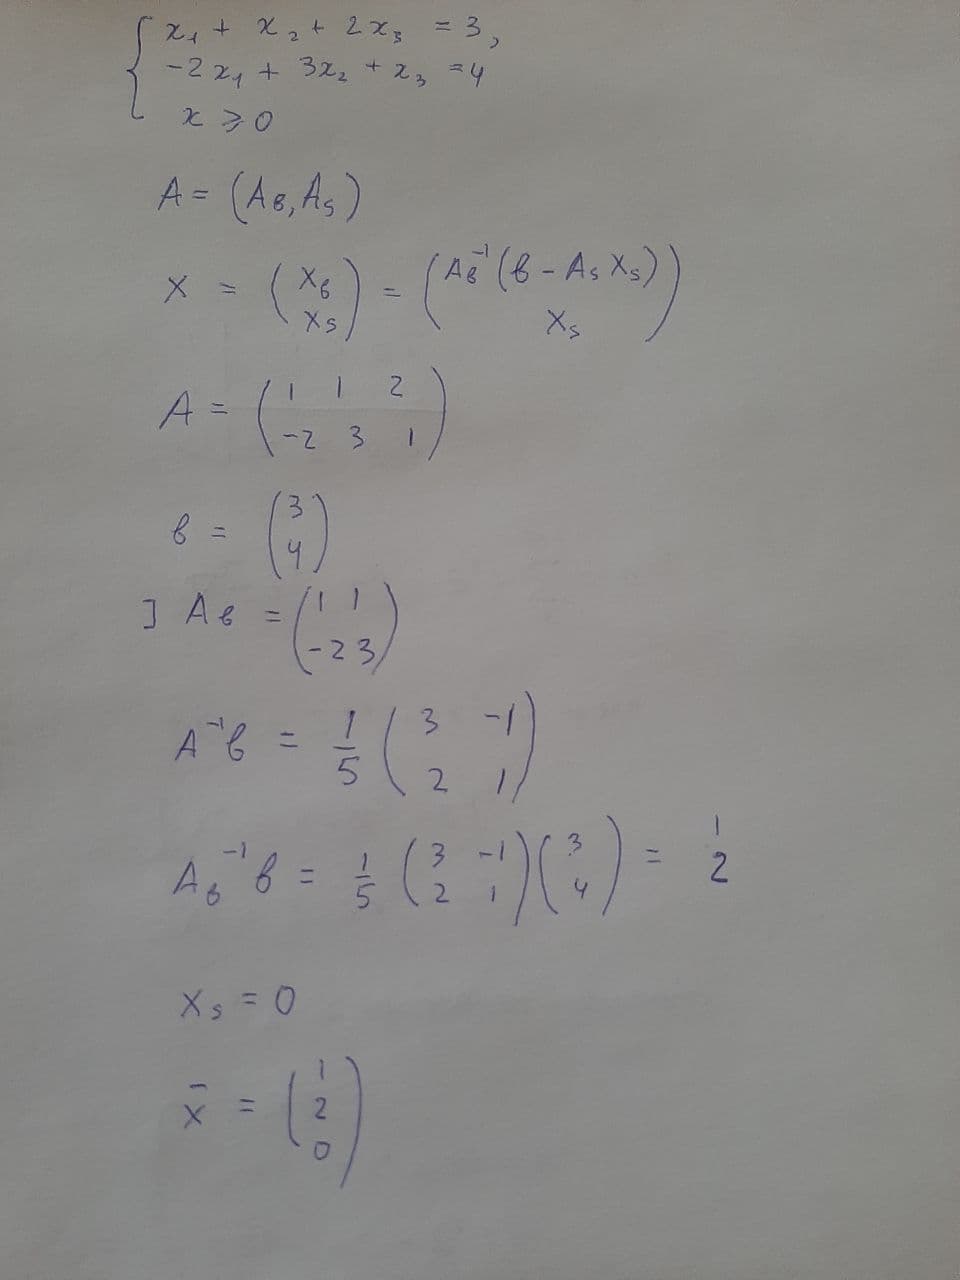 { x₁ + x₂ + 2x₃ = 3,
-2x₁ + 3x₂ + x₃ = 4
x ⩾ 0
A = (Aв, As)
X = (Xв Xs) = (Aв⁻¹(в - As Xs) Xs)
A = (1 1 2
-2 3 1)
в = (3
4)
] Aв = (1 1
-2 3)
A⁻¹в = 1/5 (3 -1
2 1)
Aв⁻¹в = 1/5 (3 -1 2 1)(3 4) = 1 2
Xs = 0
x̄ = (1
2
0)